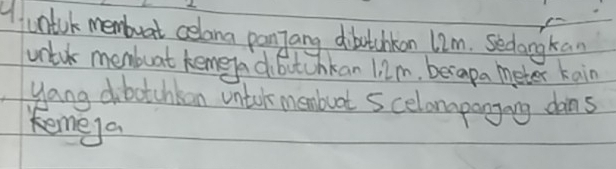 4. untuk membuat celana panjang dibutuhkan 1,2m. Sedangkan
untuk membuat kemeja dibutuhkan 1,2m. berapa meter kain
yang dibutuhkan untuk membuat 5 celana panjang dan 5
kemeja